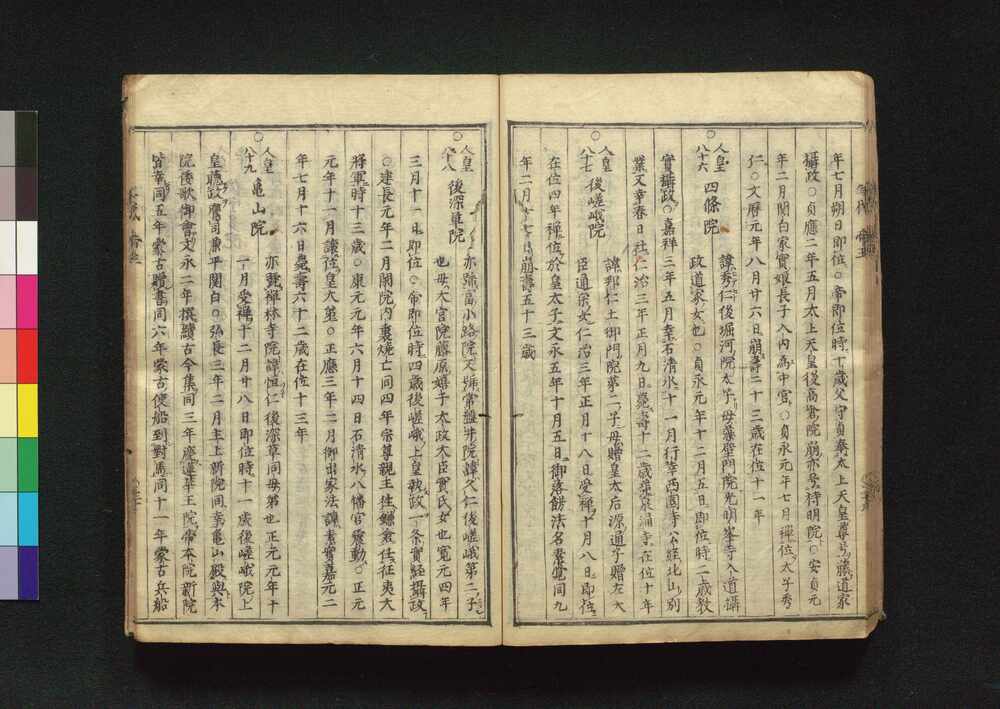 年七月朔日即位○帝即位時十歲父守貞奉太上天皇尊号藤道家
攝政○貞應二年五月太上天皇後高倉院崩亦号持明院○安貞元
年二月関白家實娘長子入内為中宮○貞永元年七月禅位太子秀
仁○文暦元年八月廿六日崩壽二十三歲在位十一年
○人皇八十六 四條院 諱秀仁後堀河院太子母藻璧門院光明峯寺入道攝
政道家女也○貞永元年十二月五日即位時二歲教
實攝政○嘉祥三年五月幸石清水十一月行幸西園寺公経北山別
業又幸春日社仁治三年正月九日薨壽十二歲葬泉涌寺在位十年
○人皇八十七 後嵯峨院 諱邦仁土御門院第二子母贈皇太后源通子贈左大
臣通宗女仁治三年正月十八日受禅十月八日即位
在位四年禅位於皇太子文永五年十月五日御落餝法名素覺同九
年二月十七日崩壽五十三歲
○人皇八十八 後深草院 亦號冨小路院又號常盤井院諱久仁後嵯峨第二子
也母大宮院藤原嬉子太政大臣實氏女也寛元四年
三月十一日即位○帝即位時四歲後嵯峨上皇執政一条實経攝政
○建長元年二月閑院内裏焼亡同四年宗尊親王任鎌倉征夷大
將軍時十三歲○康元元年六月十四日石清水八幡宮震動○正元
元年十一月讓位皇太弟○正應三年二月御出家法諱素實嘉元二
年七月十六日薨壽六十二歲在位十三年
○人皇八十九 亀山院 亦號禅林寺院諱恒仁後深草同母第也正元元年十
一月受禅十二月廿八日即位時十一歲後嵯峨院上
皇聴政鷹司兼平関白○弘長三年二月主上新院同幸亀山殿與本
院倭歌御會文永二年撰續古今集同三年慶蓮華王院帝本院新院
皆幸同五年蒙古贈書同六年蒙古使船到對馬同十一年蒙古兵船